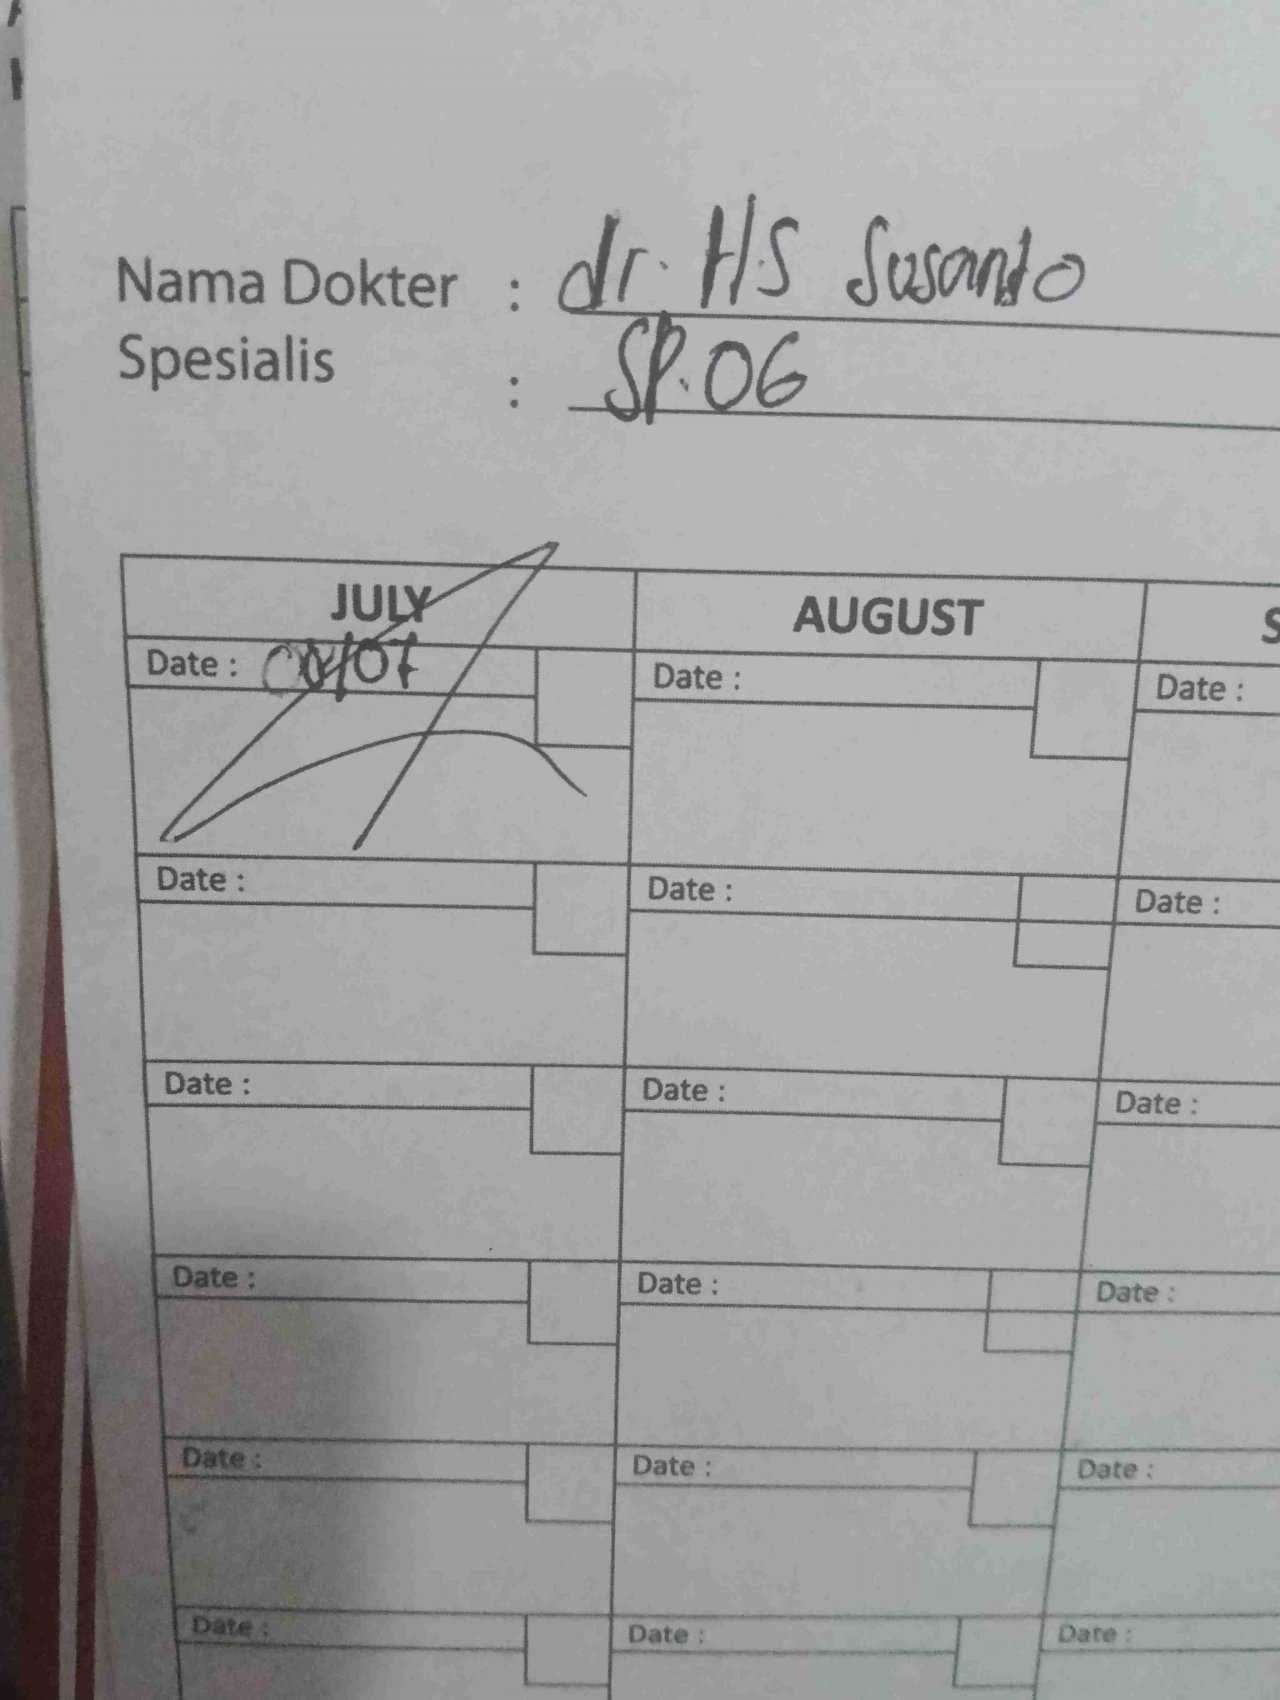 Nama Dokter : dr. H.S Susanto
Spesialis : SP.OG
JULY AUGUST
Date : /07 Date : Date :
Date : Date : Date :
Date : Date : Date :
Date : Date : Date :
Date : Date : Date :
Date : Date : Date :